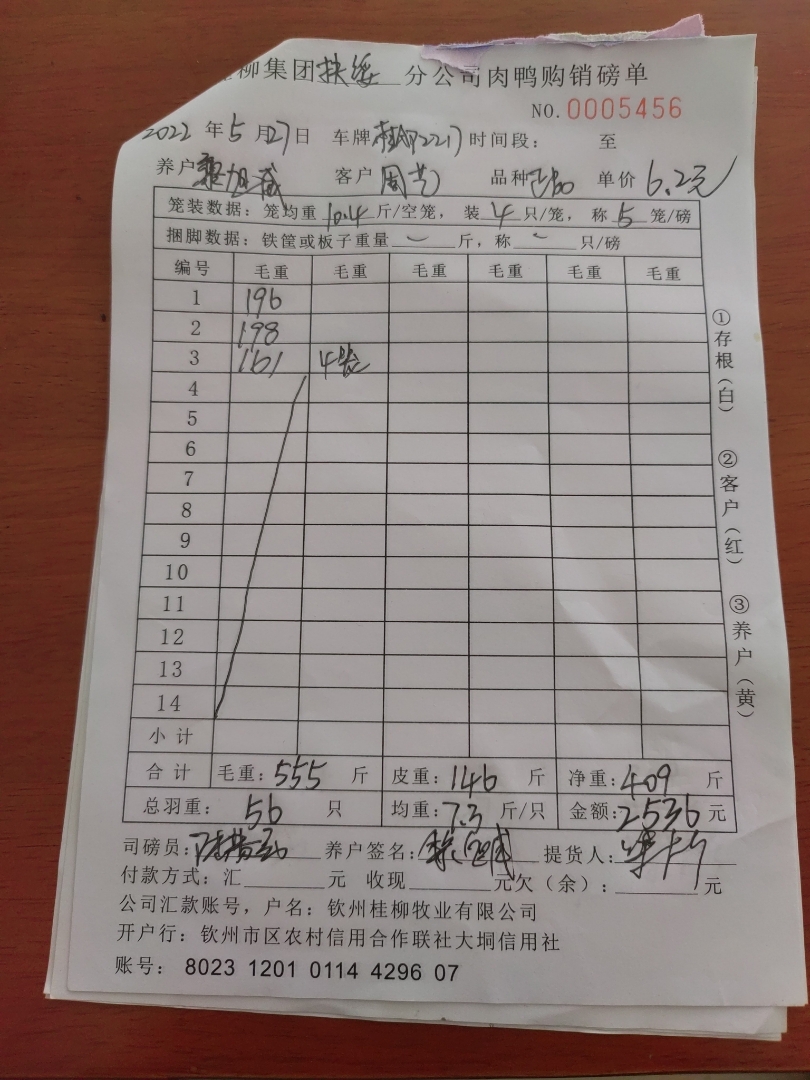 柳集团扶绥分公司肉鸭购销磅单
NO.0005456
2022年5月27日 车牌 2217 时间段： 至
养户 客户 周 品种 单价 6.2元
笼装数据：笼均重10.4斤/空笼，装4只/笼，称5笼/磅
捆脚数据：铁筐或板子重量 斤，称 只/磅
编号 毛重 毛重 毛重 毛重 毛重 毛重
1 196
2 198
3 161 4笼
4
5
6
7
8
9
10
11
12
13
14
小计
合计 毛重：555斤 皮重：146斤 净重：409斤
总羽重：56只 均重：7.3斤/只 金额：2536元
司磅员： 养户签名： 提货人：
付款方式：汇 元 收现 元欠（余）： 元
公司汇款账号，户名：钦州桂柳牧业有限公司
开户行：钦州市区农村信用合作联社大垌信用社
账号： 8023 1201 0114 4296 07
①存根（白）
②客户（红）
③养户（黄）